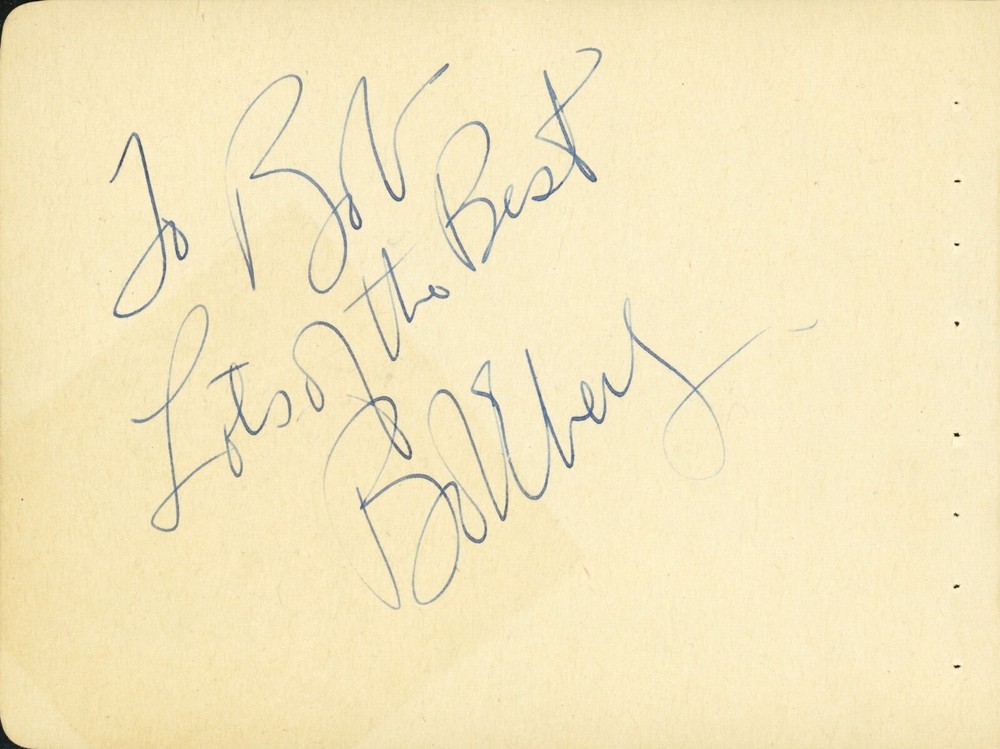 To Bob
Lots of the Best
Bob Eberly